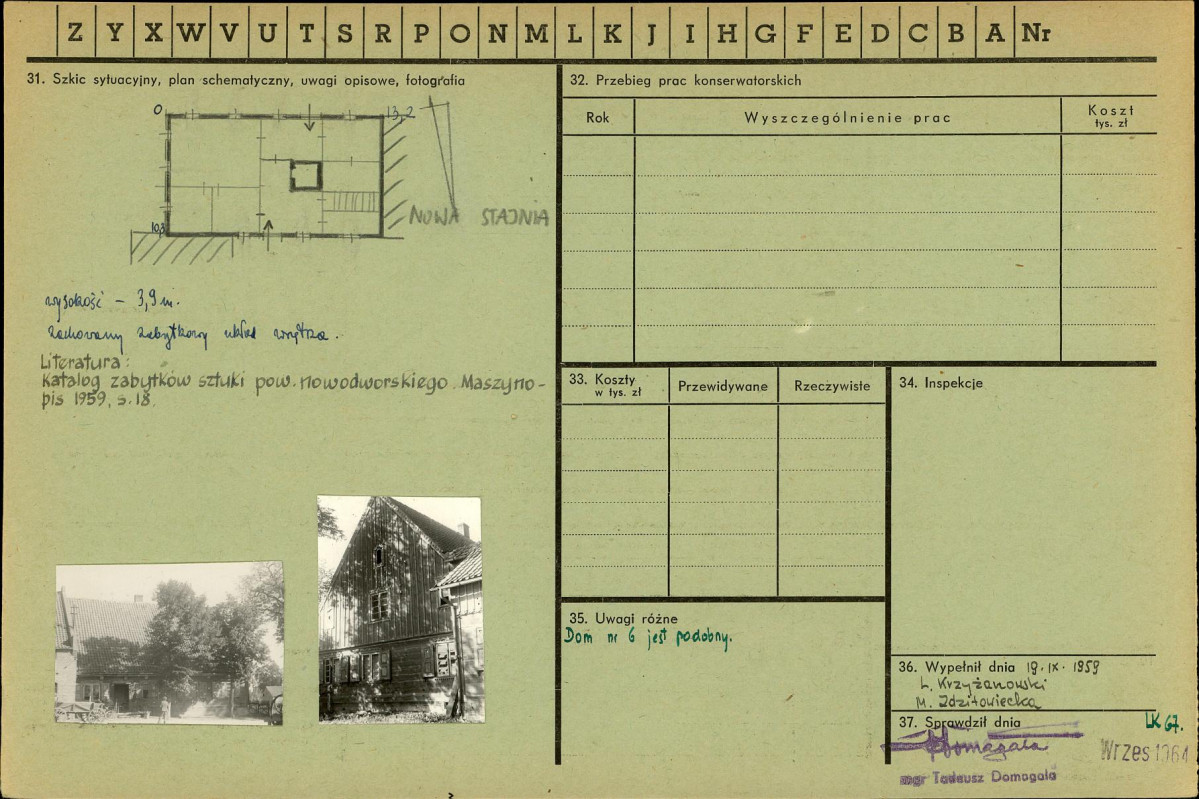 Z Y X W V U T S R P O N M L K J I H G F E D C B A Nr
31. Szkic sytuacyjny, plan schematyczny, uwagi opisowe, fotografia
0
13,2
10,3
NOWA STAJNIA
wysokość – 3,9 m.
zachowany zabytkowy układ wnętrza.
Literatura:
Katalog zabytków sztuki pow. nowodworskiego. Maszyno-
pis 1959, s. 18.
32. Przebieg prac konserwatorskich
Rok
Wyszczególnienie prac
Koszt
tys. zł
33. Koszty
w tys. zł
Przewidywane
Rzeczywiste
34. Inspekcje
35. Uwagi różne
Dom nr 6 jest podobny.
36. Wypełnił dnia 19.IX.1959
L. Krzyżanowski
M. Zdzitowiecka
37. Sprawdził dnia
LK 67.
Domagała
Wrzes 1964
mgr Tadeusz Domagała